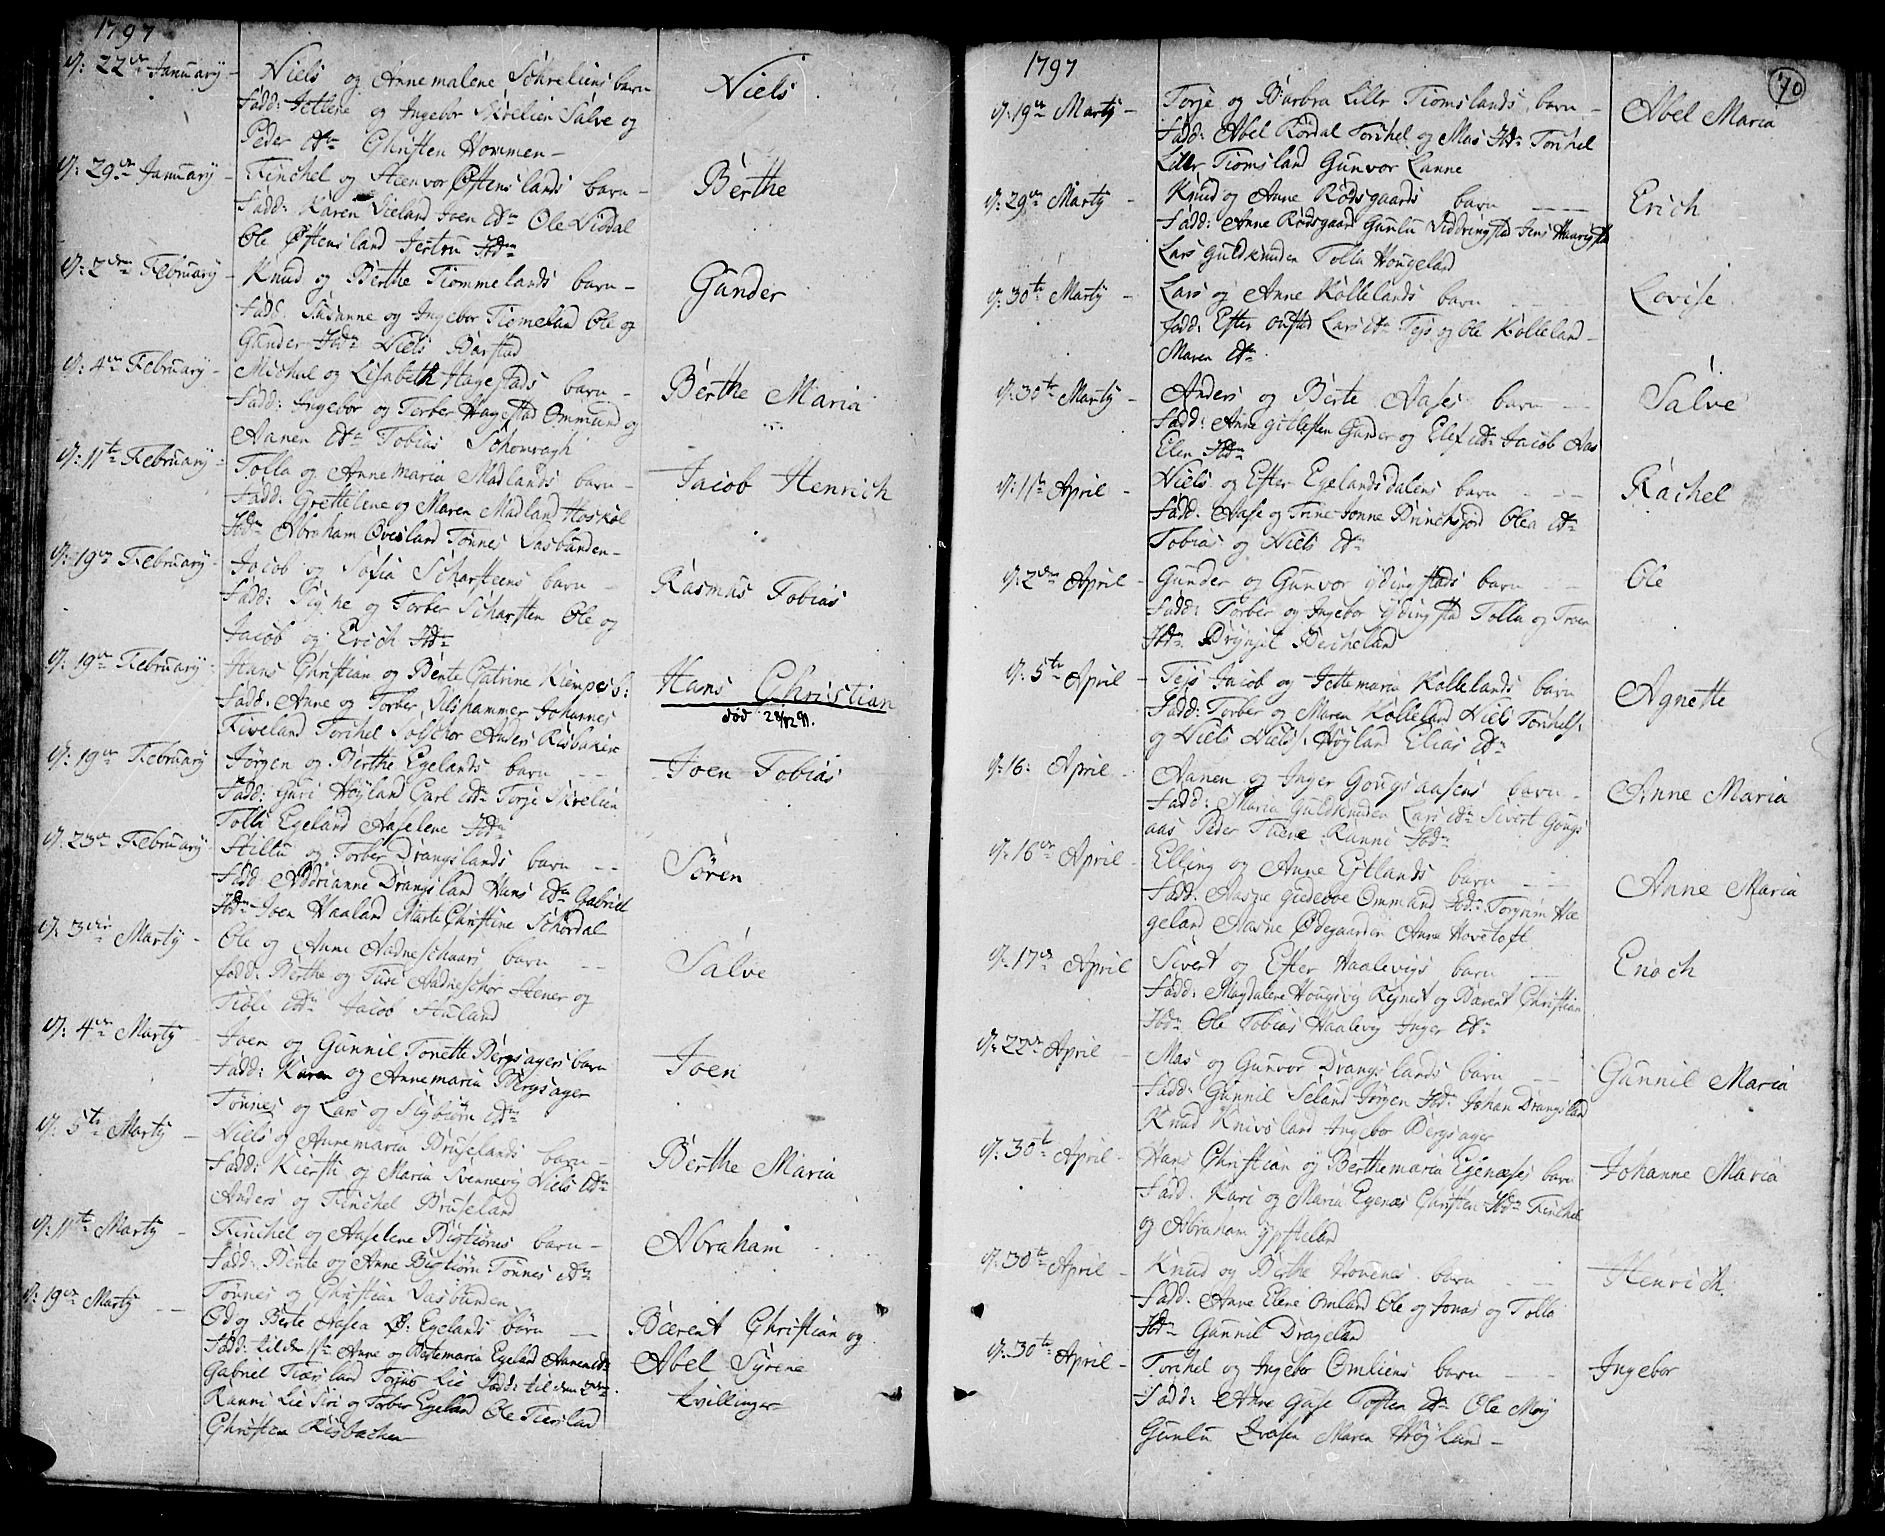 1797
d: 22de January - Niels og Annemalene Schreliens barn
Fadd: Jettene og Ingebor Skrelien Salve og
Peder ibdm Christen Hommen -
Niels
d: 29de January - Tirichel og Steenvor Østenslands barn -
Fadd: Karen Lieland Joen ibdm Ole Liddal
Ole Østensland Jertru Ibdm
Berthe
d: 2den February - Knud og Berthe Tiommelands barn -
Fadd: Susanne og Ingebor Tiomeland Ole og
Gunder Ibdm Niels Barstad
Gunder
d: 4de February - Michul og Lisabeth Hagestads barn -
Fadd: Ingebor og Torber Hagestad Ommund og
Aanen ibdm Tobias Schomragh
Berthe Maria
d: 11te February - Tolla og Annemaria Madlands barn -
Fadd: Grethelene og Maren Madland Hoskol
Ibdm Abraham Øvesland Tonnes Lasbunden -
Jacob Henrich
d: 19de February - Jacob og Sofia Scharsteens barn -
Fadd: Sighe og Torber Scharsten Ole og
Jacob og Erich Ibdm
Rasmus Tobias
d: 19de February - Hans Christian og Bente Catrine Kiempes b:
Fadd: Anne og Torber Ulshammer Johannes
Fiveland Torchel Solschor Anders Risbakin
Hans Christian
død 28/12 91.
d: 19de February Jørgen og Berthe Egelands barn - -
Fadd: Guri Høyland Carl ibdm Torje Skrelien
Tolli Egeland Aaselene Ibdm
Joen Tobias
d: 23de February Stillu og Torber Drangslands barn - -
Fadd: Addrianne Drangsland Hans ibdm Gabriel
Ibdm Joen Haaland Marte Christine Schordal
Søren
d: 3die Marty - Ole og Anne Aadneschaars barn - -
fadd: Berthe og Turi Aadneschor Stener og
Tieli ibdm Jacob Stuland
Salve
d: 4de Marty - Joen og Gunnil Tonette Bergsagers barn
Fadd: Karen og Annemaria Bergsager
Tønnes og Lars og Sigbiørn ibdm
Joen
d: 5te Marty - Niels og Annemaria Bruselands barn -
Fadd: Kiersti og Maria Svennevig Niels ibdm
Anders og Tirichel Bruseland
Berthe Maria
d: 11te Marty - Tirichel og Aaselene Bigtiørns barn -
Fadd: Bente og Anne Bigtiørn Tønnes ibdm
Tønnes og Christian Lasbunden
Abraham
d: 19de Marty - - Od og Berte Aasea Ø: Egelands børn -
Fadd: til den 1ste Anne og Bertemaria Egeland Aanen ibdm
Gabriel Tiersland Torjus Lie Fadd: til den 2den
Ranni Lie Siri og Torber Egeland Ole Tiersland
Christen Risbachen
Bærent Christian og
Abel Syrene
tvillinger
1797
70
d: 19de Marty - Torje og Barbra Lille Tiomslands barn -
Fadd: Abel Rørdal Torchel og Mas Ibdm Torchel
Lille Tiomsland Gunvor Lanne
Abel Maria
d: 29de Marty - Knud og Anne Rødsgaards barn - -
Fadd: Anne Rødsgaard Gunlu Liddringstad Jens Haarigsta
Lars Guldknuden Tolla Hougeland
Erich
d: 30te Marty - Lars og Anne Kollelands barn - -
fadd: Ester oufstad Lars ibdm Tejs og Ole Kolleland -
Maren ibdm
Lovise
d: 30te Marty - Anders og Berte Aases barn - -
Fadd: Anne gitlesten Gunder og Elef ibdm Jacob Aas
Elen Ibdm
Salve
d: 11te April - Niels og Ester Egelandsdalens barn - - -
Fadd: Aase og Trine Tonne Brinchsjord Olea ibdm
Tobias og Niels ibdm
Rachel
d: 2den April - Gunder og Gunvor ydingstads barn - -
Fadd: Torber og Ingebor ydingstad Tolla og Troen
Ibdm Brynjil Bercheland
Ole
d: 5te April - Tejs Jacob og Jettemaria Kollelands barn
Fadd: Torber og Maren Kolleland Niels Torchels:
og Niels Niels: Høyland Elias ibdm
Agnette
d: 16: April - Aanen og Inger Gougsaasens barn -
Fadd: Maria Guldknuden Lars ibdm Sivert Gougs
aas Peder Taene Ranni Ibdm
Anne Maria
d: 16de April - Elling og Anne Eftlands barn - -
Fadd: Aasne gudeboe Ommund Ibdm Torgrim Hæ
geland Aasne Ødegaarden Anne Hovetoft
Anne Maria
d: 17de April Sivert og Ester Haalevigs barn -
Fadd: Magdalene Hougsvig Rejnert og Bærent Christian
Ibdm Ole Tobias Haalevig Inger ibdm
Enoch
d: 22de April - Mas og Gunvor Drangslands barn - -
Fadd: Gunnil Seland Jørgen Ibdm Johan Drangsland
Knud Knivsland Ingebor Bergsager
Gunnil Maria
d: 30te April - Hans Christian og Berthemaria Egenæses barn
Fadd: Kari og Maria Egenæs Christen Ibdm Tirichel
og Abraham ypsteland
Johanne Maria
d: 30te April - Knud og Berthe Hovenes barn - -
Fadd: Anne Elene Omland Ole og Jonas og Tolla
Ibdm Gunnil Drageland
Henrich.
d: 30te April - Torchel og Ingebor Omliens barn - -
Fadd: Anne Gase Torsten ibdm Ole Moy
Gunlu Qvasen Maren Høyland -
Ingebor